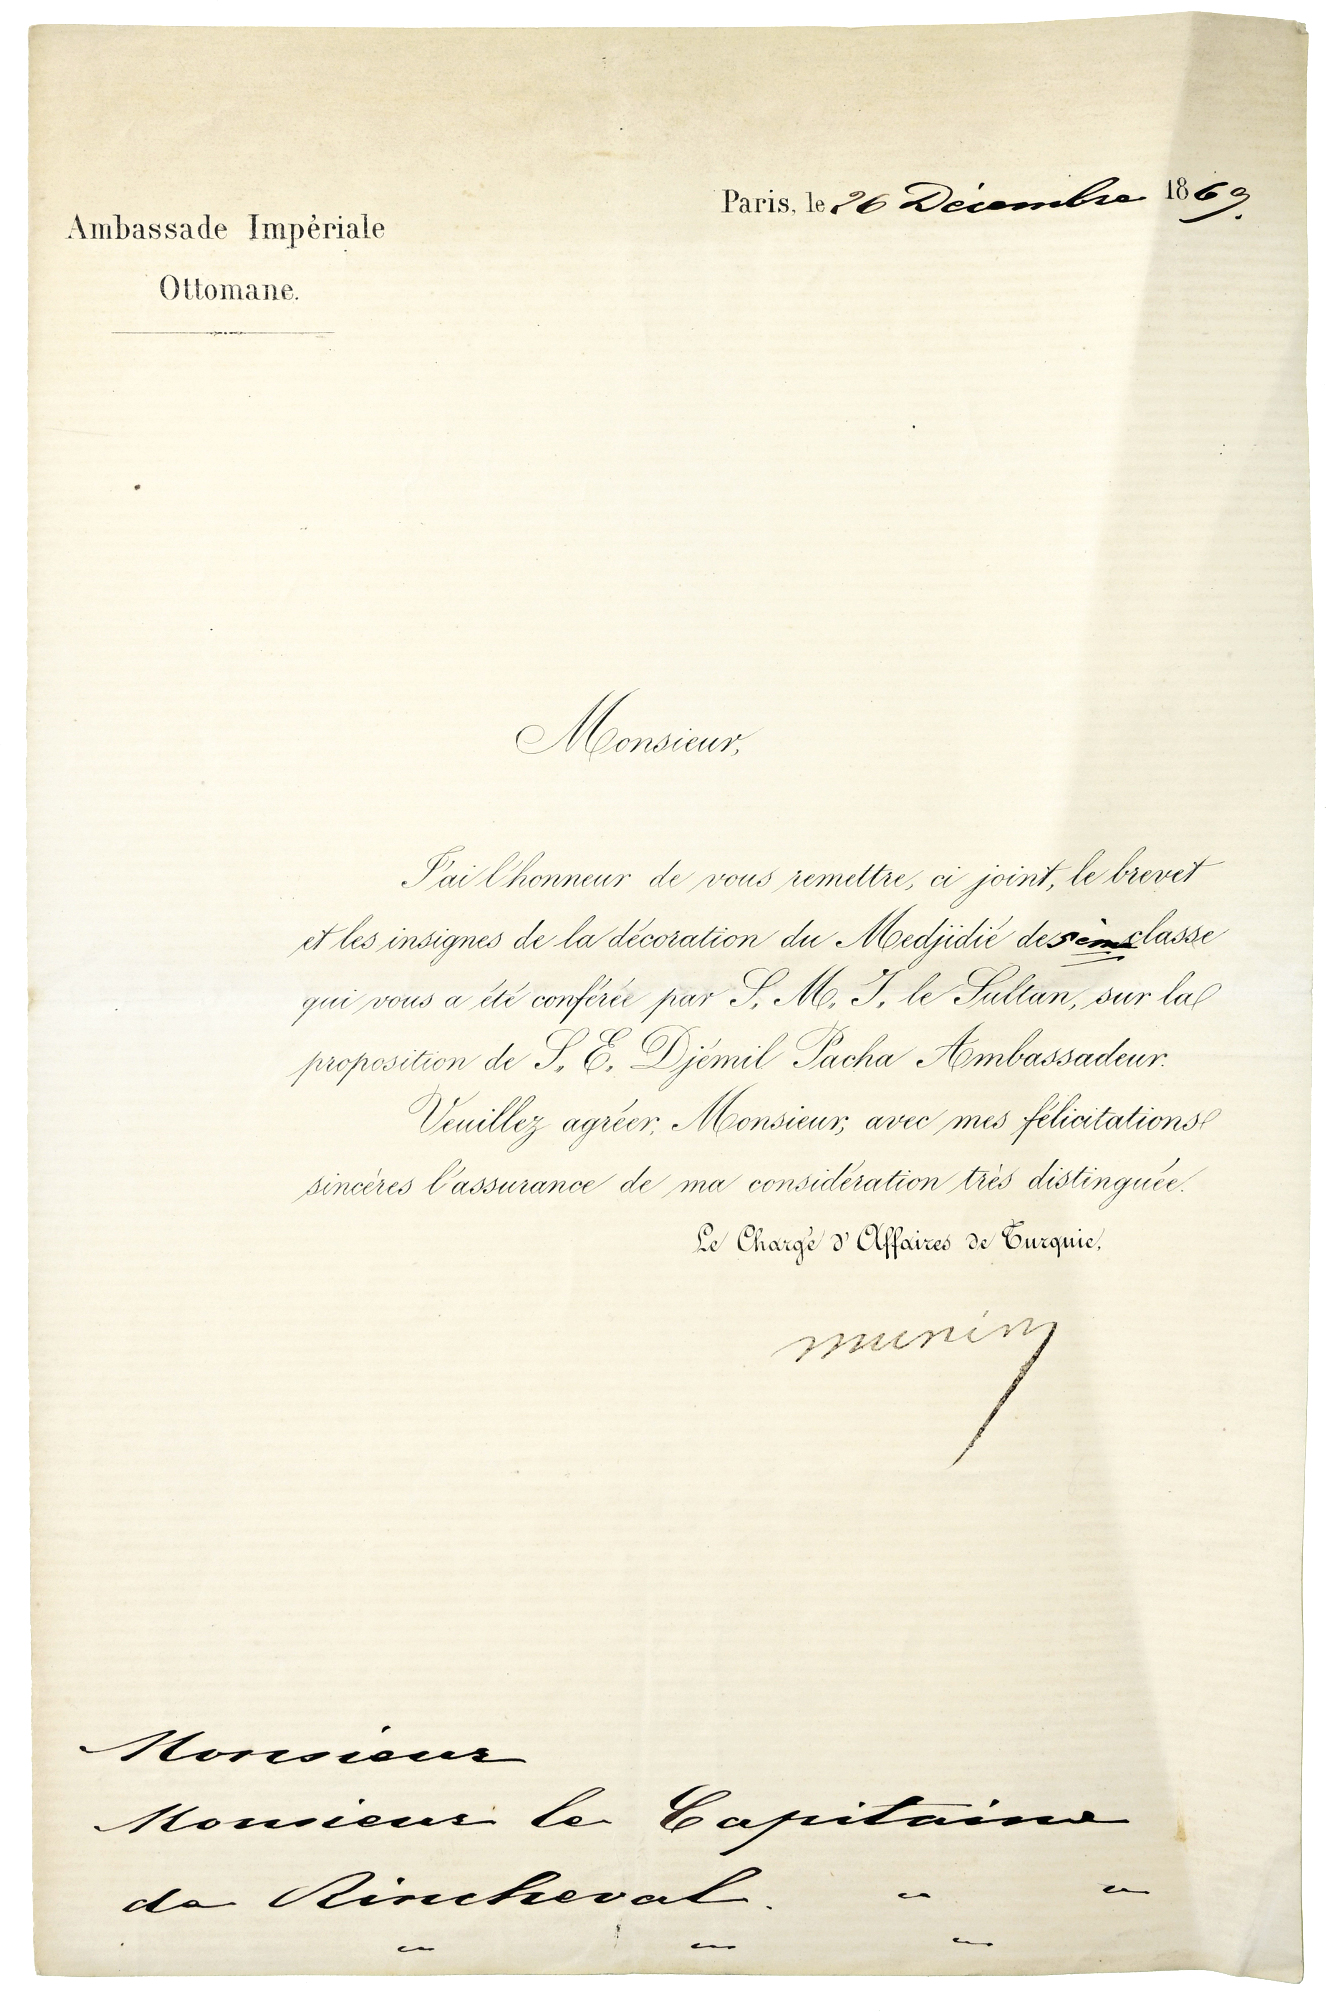 Paris, le 26 Décembre 1869.
Ambassade Impériale
Ottomane.
Monsieur,
J'ai l'honneur de vous remettre, ci joint, le brevet
et les insignes de la décoration du Medjidié de 5ème classe
qui vous a été conférée par S. M. I. le Sultan, sur la
proposition de S. E. Djémil Pacha Ambassadeur.
Veuillez agréer, Monsieur, avec mes félicitations
sincères l'assurance de ma considération très distinguée.
Le Chargé d'Affaires de Turquie,
Monsieur
Monsieur le Capitaine
de Rincheval.